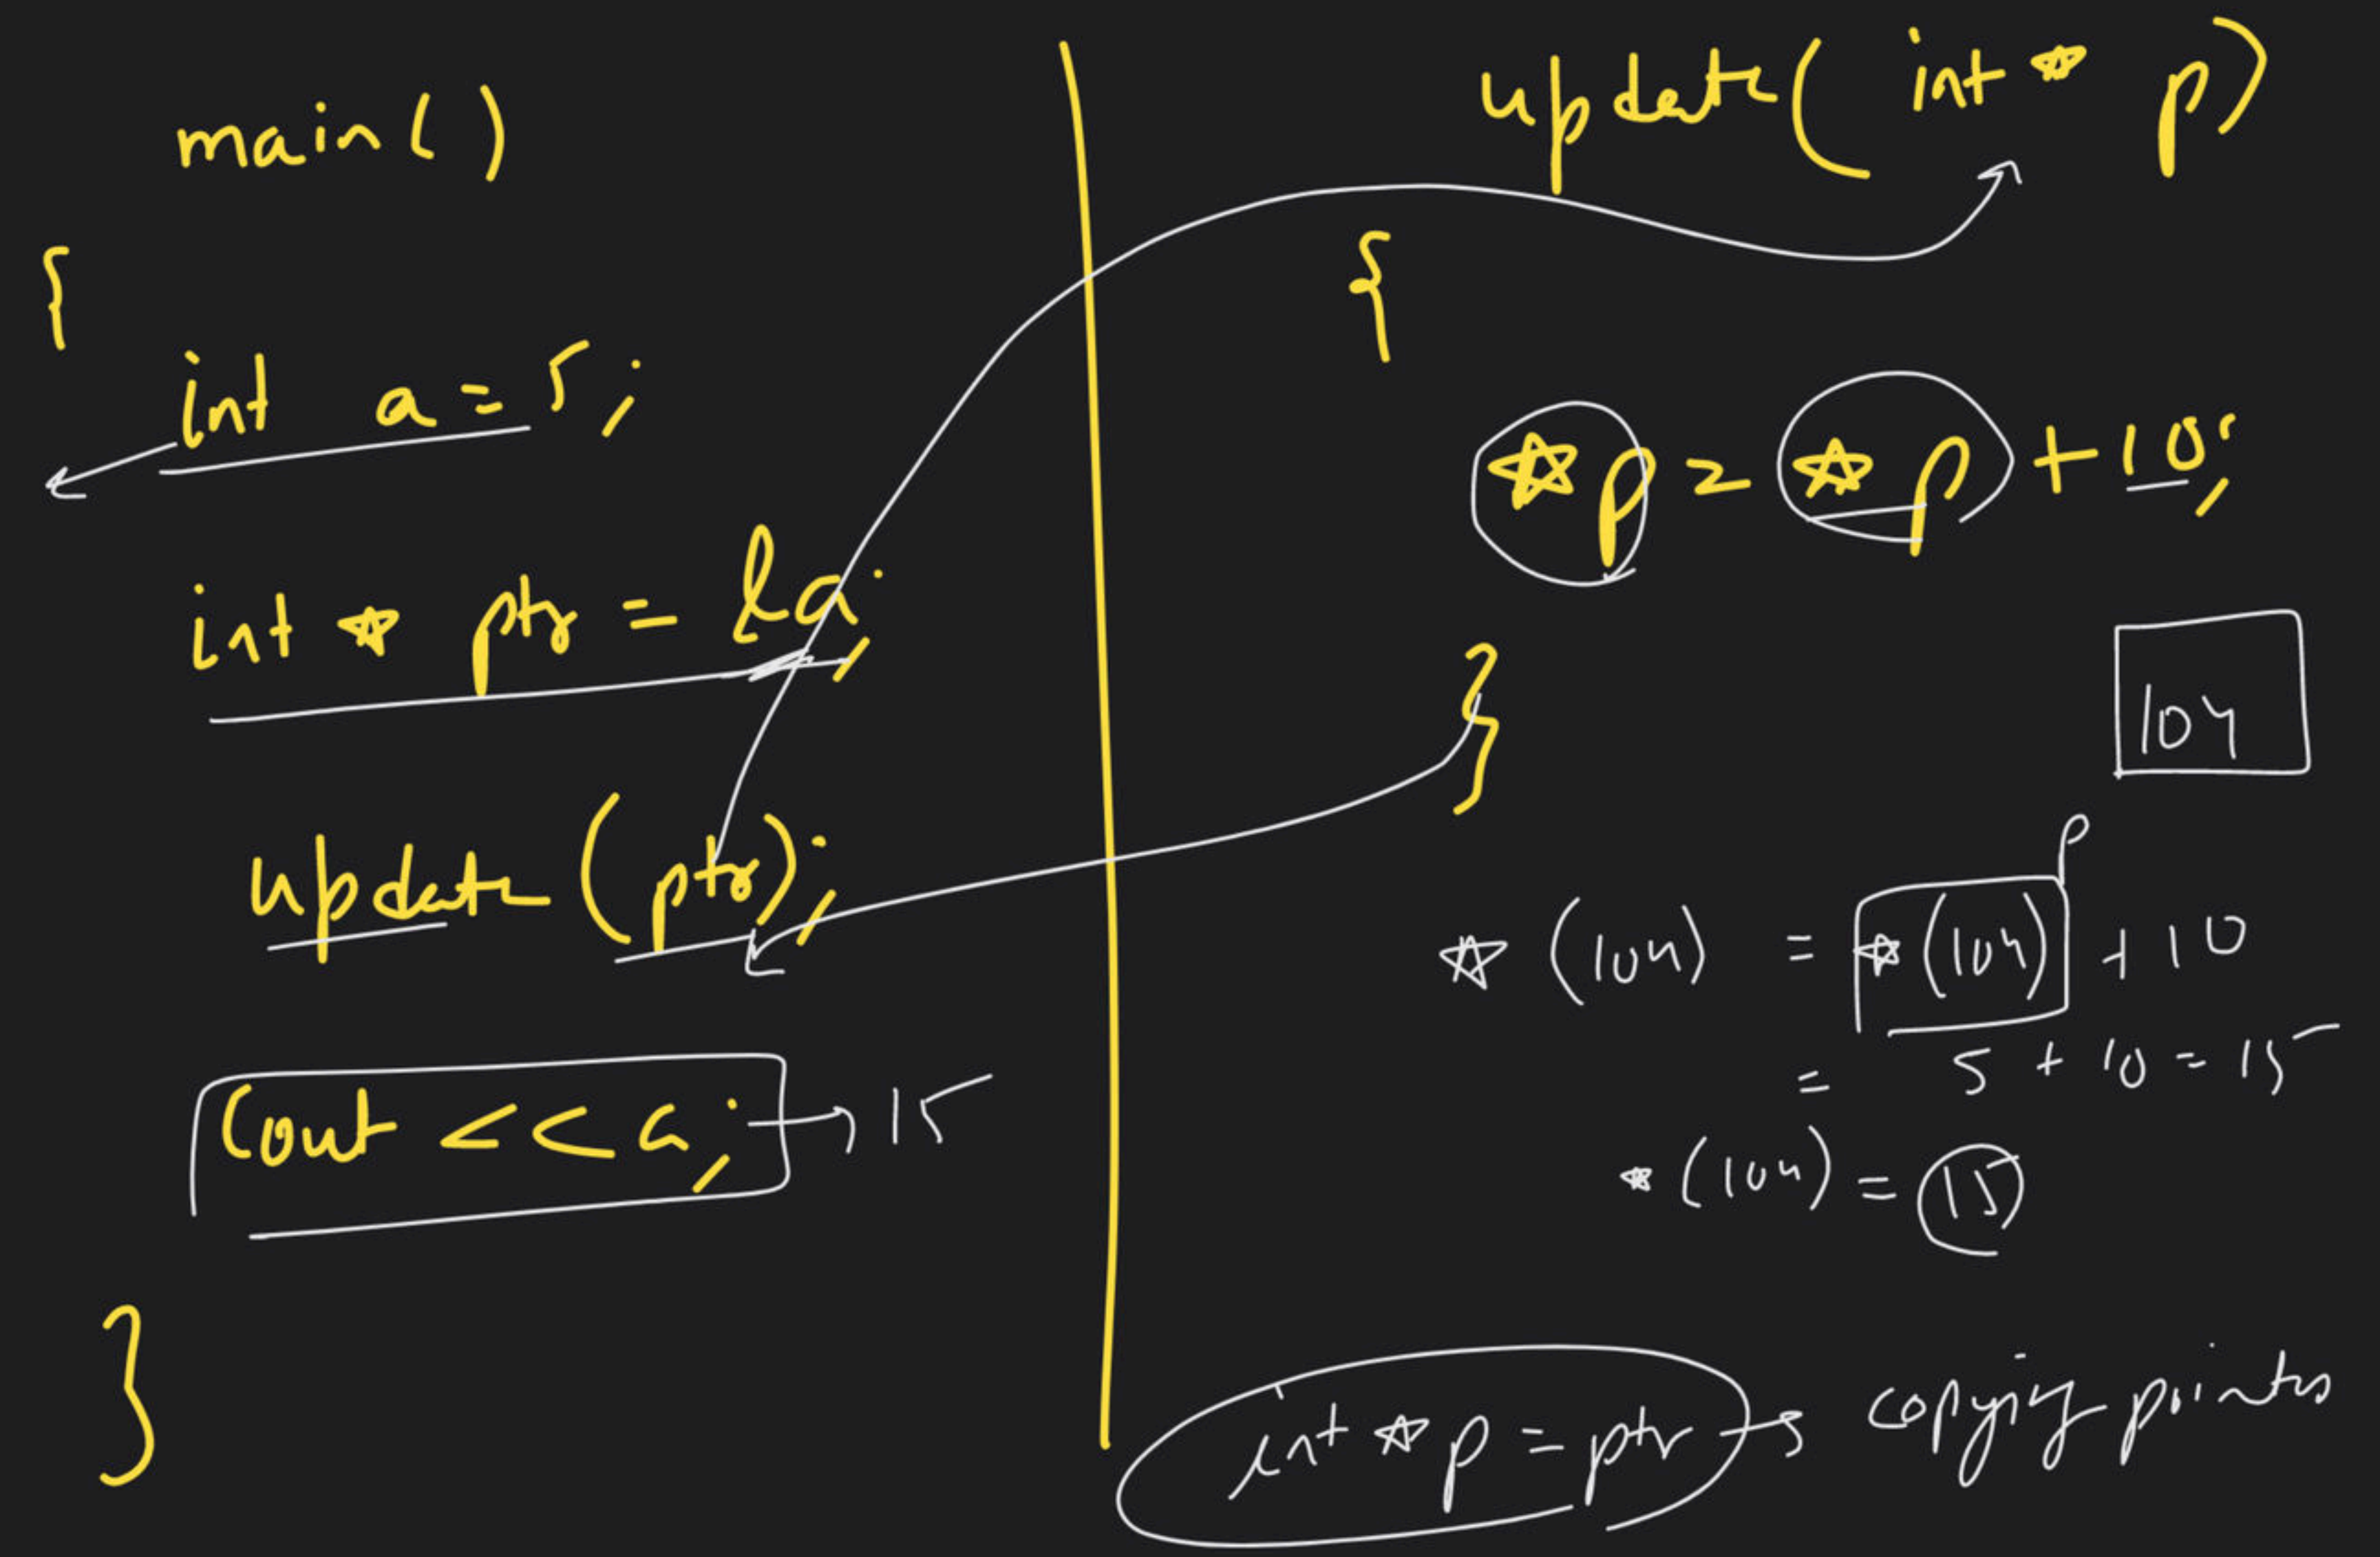 main()
{
int a = 5;
int * ptr = &a;
update(ptr);
cout << a; → 15
}
update(int * p)
{
*p = *p + 10;
}
104
p
*(104) = *(104) + 10
= 5 + 10 = 15
*(104) = 15
int * p = ptr → copying pointers